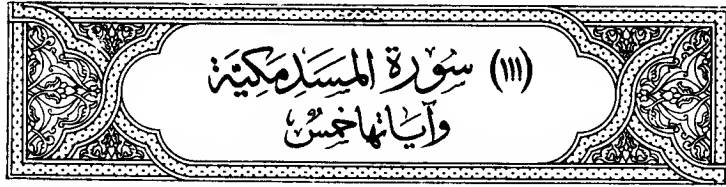 (١١١) سُورَة المَسَدِ مَكيَّة
وَآيَاتهَا خَمسٌ